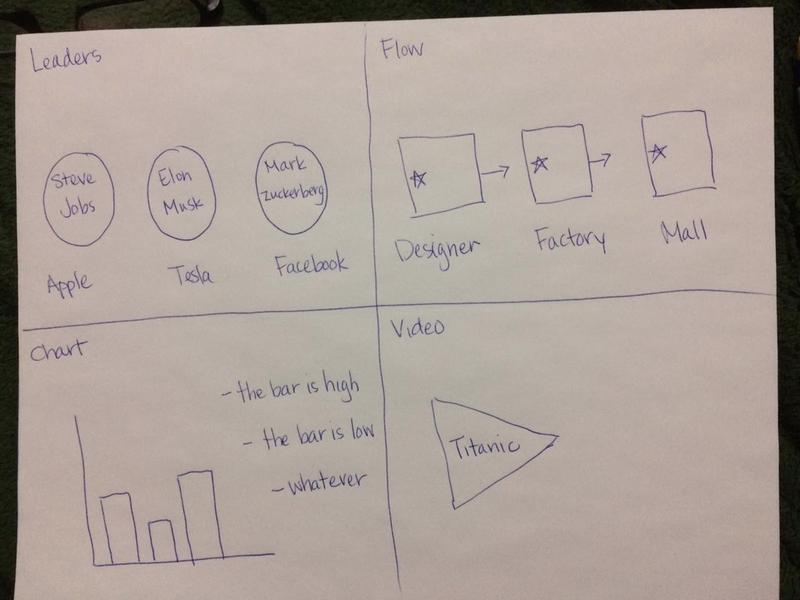 Leaders
Steve
Jobs
Elon
Musk
Mark
Zuckerberg
Apple
Tesla
Facebook
Flow
Designer
Factory
Mall
Chart
- the bar is high
- the bar is low
- whatever
Video
Titanic